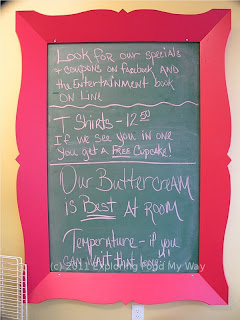 Look for our specials
& coupons on facebook AND
the Entertainment book
ON LINE
T Shirts - 12.00
If we see you in one
You get a FREE Cupcake!
Our Buttercream
is Best At Room
Temperature - if you
can wait that long
(c) 2011 Exploring Food My Way